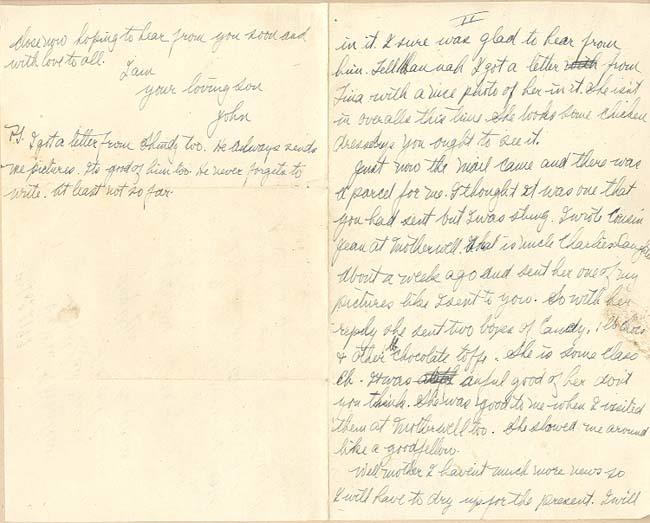 II
in it. I sure was glad to hear from
him. Tell Hannah I got a letter from
Tina with a nice photo of her in it. She isn't
in overalls this time She looks some chicken
dressed you ought to see it.
Just now the mail came and there was
a parcel for me. I thought it was one that
you had sent but I was stung. I wrote Cousin
Jean at Motherwell. That is uncle Charlies Daughter
About a week ago and sent her one of my
pictures like I sent to you. So with her
reply she sent two boxes of Candy. 1 lb Choco
& other lb chocolate toffe. She is some class
Eh. It was awful good of her don't
you think. She was good to me when I visited
them at Motherwell too. She showed me around
like a good fellow.
Well mother I havent much more news so
I will have to dry up for the present. I will
close now hoping to hear from you soon and
with love to all.
I am
your loving son
John
P.S. I got a letter from too. He always sends
me pictures. Its good of him too. He never forgets to
write. At least not so far.